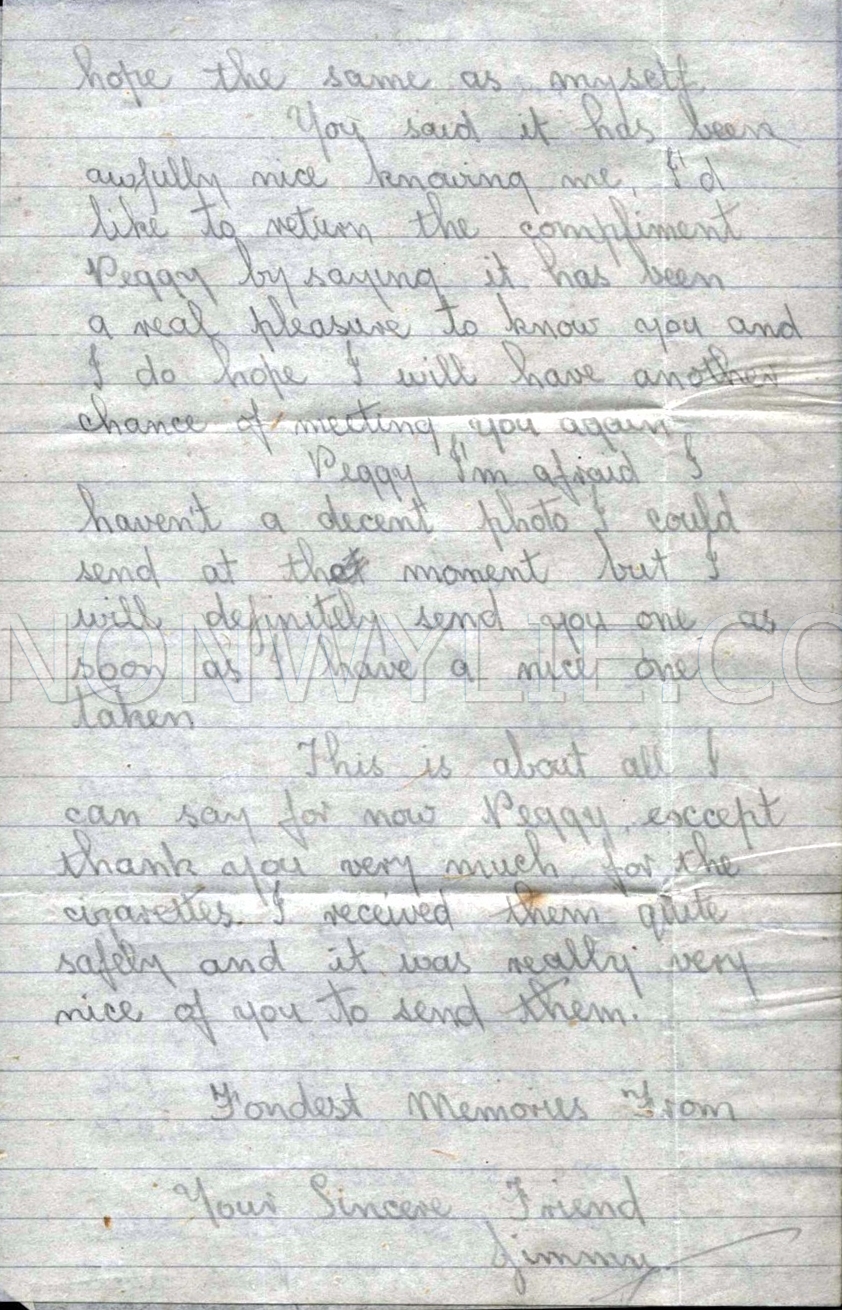 hope the same as myself
You said it has been
awfully nice knowing me, I'd
like to return the compliment
Peggy by saying it has been
a real pleasure to know you and
I do hope I will have another
chance of meeting you again
Peggy I'm afraid I
haven't a decent photo I could
send at that moment but I
will definitely send you one as
NONWYLIE.CO
soon as I have a nice one
taken
This is about all I
can say for now Peggy, except
thank you very much for the
cigarettes. I received them quite
safely and it was really very
nice of you to send them.
Fondest Memories From
Your Sincere Friend
Jimmy